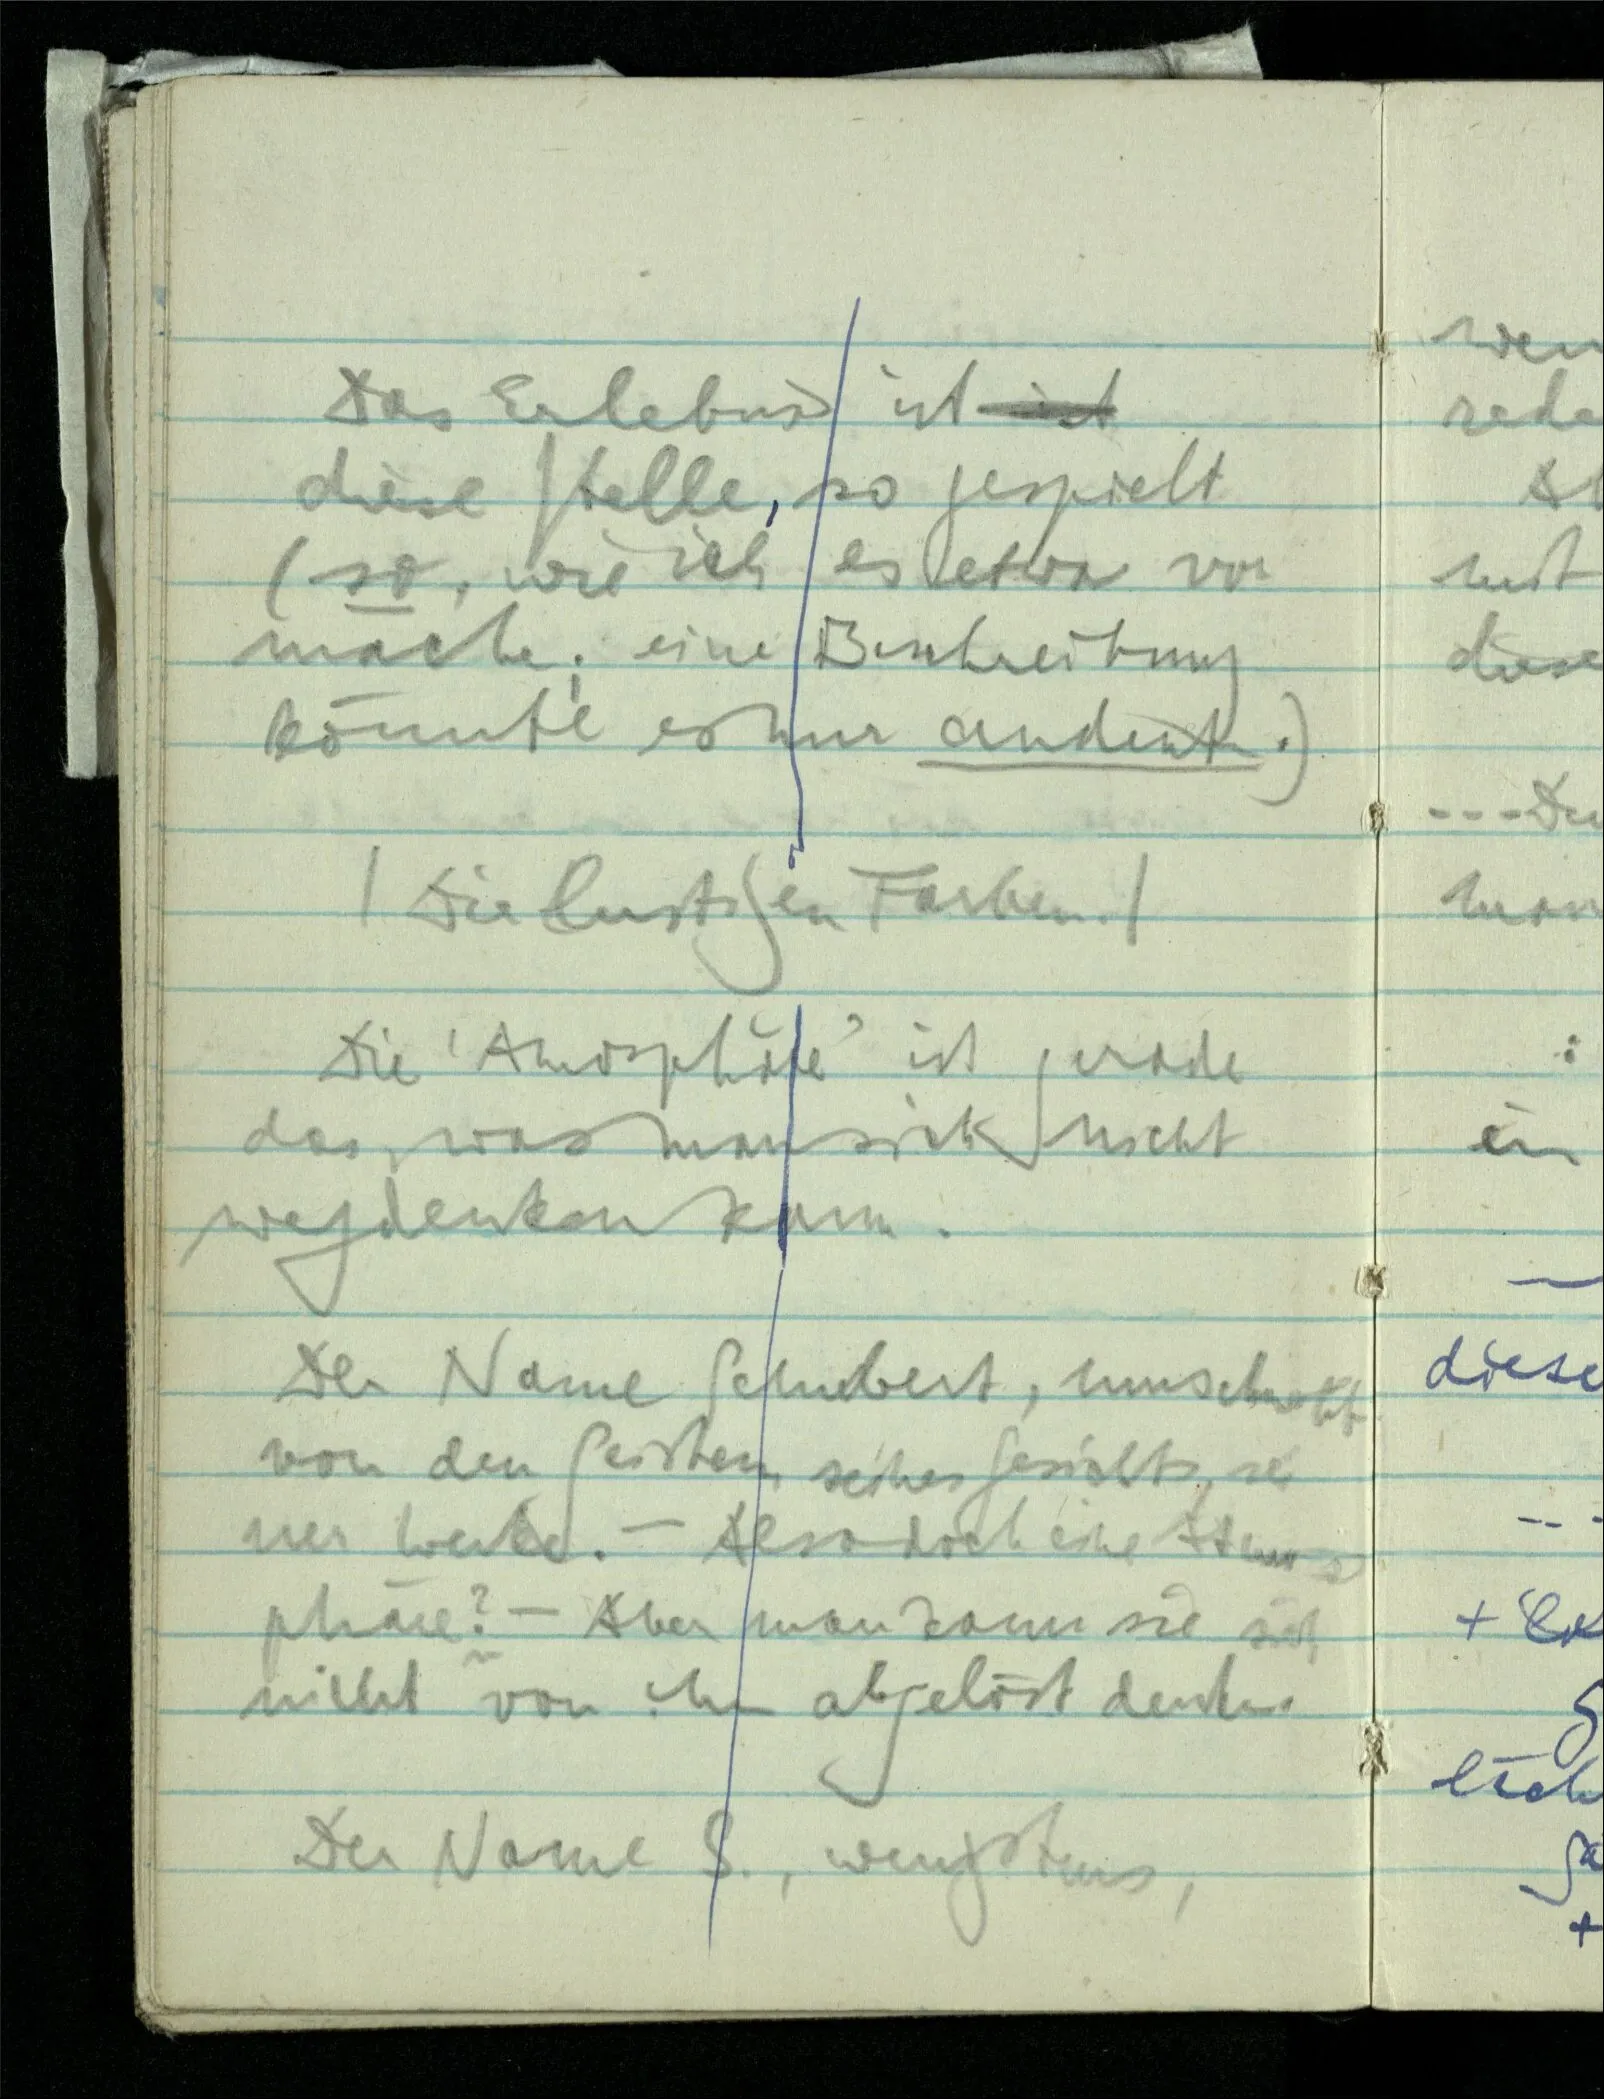 Das Erlebnis ist ist
diese Stelle, so gespielt
(so, wie ich es etwa vor
mache; eine Beschreibung
könnte es nur andeuten.)
/ Die lustigen Farben. /
Die 'Atmosphäre' ist gerade
das, was man sich nicht
wegdenken kann.
Der Name Schubert, umschattet
von den Gesten seines Gesichts, sei
ner Werke. — Also doch eine Atmos
phäre? — Aber man kann sie sich
nicht von ihm abgelöst denken.
Der Name S., wenigstens,
wen
rede
mit
diese
man
:
ein
—
diese
lich
+